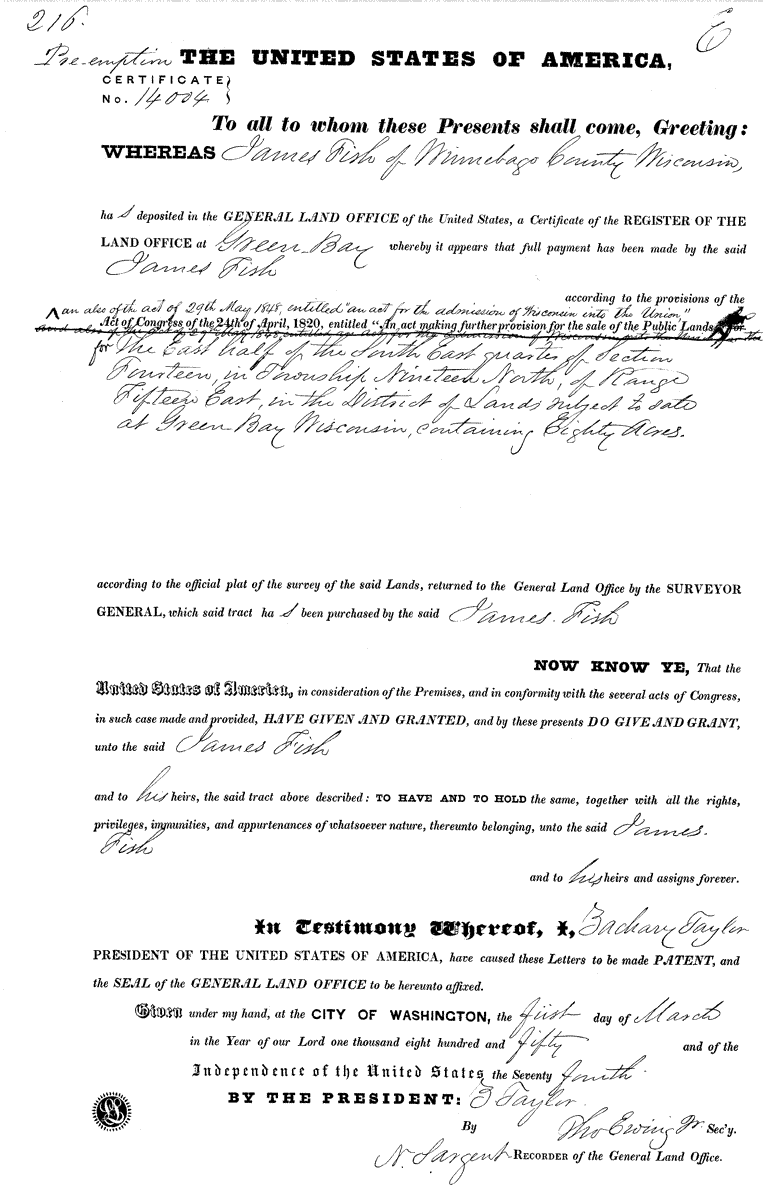 216.
E
Pre-emption THE UNITED STATES OF AMERICA,
CERTIFICATE
No. 14004
To all to whom these Presents shall come, Greeting:
WHEREAS James Fish of Winnebago County Wisconsin,
ha s deposited in the GENERAL LAND OFFICE of the United States, a Certificate of the REGISTER OF THE
LAND OFFICE at Green Bay whereby it appears that full payment has been made by the said
James Fish
according to the provisions of the
an also of the act of 29th May 1848, entitled "an act for the admission of Wisconsin into the Union,"
Act of Congress of the 24th of April, 1820, entitled "An act making further provision for the sale of the Public Lands,
for The East half of the South East quarter of Section
Fourteen, in Township Nineteen North, of Range
Fifteen East, in the District of Lands subject to sale
at Green Bay Wisconsin, containing Eighty Acres.
according to the official plat of the survey of the said Lands, returned to the General Land Office by the SURVEYOR
GENERAL, which said tract ha s been purchased by the said James Fish
NOW KNOW YE, That the
United States of America, in consideration of the Premises, and in conformity with the several acts of Congress,
in such case made and provided, HAVE GIVEN AND GRANTED, and by these presents DO GIVE AND GRANT,
unto the said James Fish
and to his heirs, the said tract above described: TO HAVE AND TO HOLD the same, together with all the rights,
privileges, immunities, and appurtenances of whatsoever nature, thereunto belonging, unto the said James
Fish
and to his heirs and assigns forever.
In Testimony Whereof, I, Zachary Taylor
PRESIDENT OF THE UNITED STATES OF AMERICA, have caused these Letters to be made PATENT, and
the SEAL of the GENERAL LAND OFFICE to be hereunto affixed.
Given under my hand, at the CITY OF WASHINGTON, the first day of March
in the Year of our Lord one thousand eight hundred and fifty and of the
Independence of the United States the Seventy fourth.
BY THE PRESIDENT: Z Taylor
By Tho Ewing Jr. Sec'y.
N. Sargent RECORDER of the General Land Office.